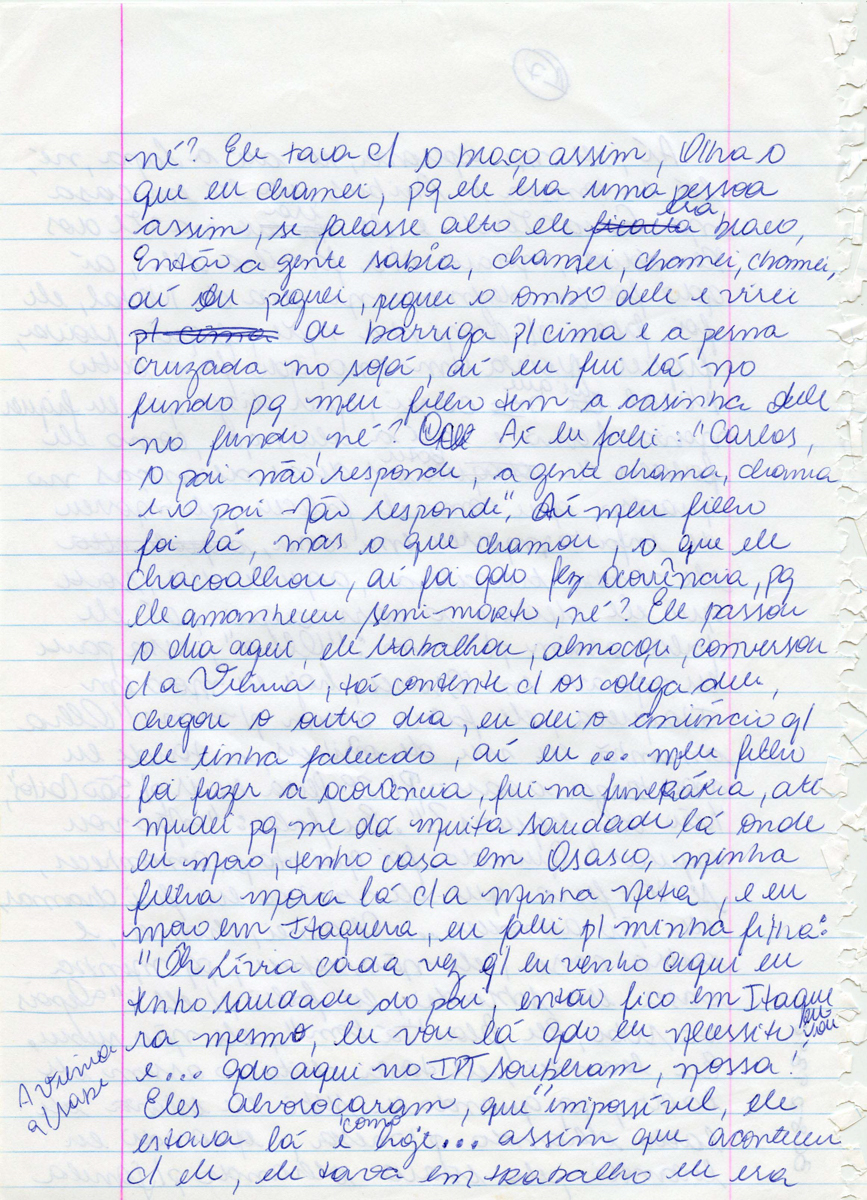 né? Ele tava c/ o braço assim, Olha o
que eu chamei, pq ele era uma pessoa
assim, se falasse alto ele ficava era bravo,
Então a gente sabia, chamei, chamei, chamei,
aí eu peguei, peguei o ombro dele e virei
p/ cima de barriga p/ cima e a perna
cruzada no sofá, aí eu fui lá no
fundo pq meu filho tem a casinha dele
no fundo, né? Aí eu falei: "Carlos,
o pai não responde, a gente chama, chama
e o pai não responde", Aí meu filho
foi lá, mas o que chamou, o que ele
chacoalhou, aí foi qdo fez ocorrência, pq
ele amanheceu semi-morto, né? Ele passou
o dia aqui, ele trabalhou, almoçou, conversou
c/ a Vilma, tá contente c/ os colega dele,
chegou o outro dia, eu dei o anúncio q/
ele tinha falecido, aí eu... meu filho
foi fazer a ocorrência, fui na funerária, até
mudei pq me dá muita saudade lá onde
eu moro, tenho casa em Osasco, minha
filha mora lá c/ a minha neta, e eu
moro em Itaquera, eu falei p/ minha filha:
"Oh Lívia cada vez q/ eu venho aqui eu
tenho saudade do pai, então fico em Itaque
ra mesmo, eu vou lá qdo eu necessito eu vou
e... qdo aqui no IPT souperam, nossa!
A Vilma
Eles alvoroçaram, que "impossível, ele
estava lá é como hoje... assim que aconteceu
c/ ele, ele tava em trabalho ele era